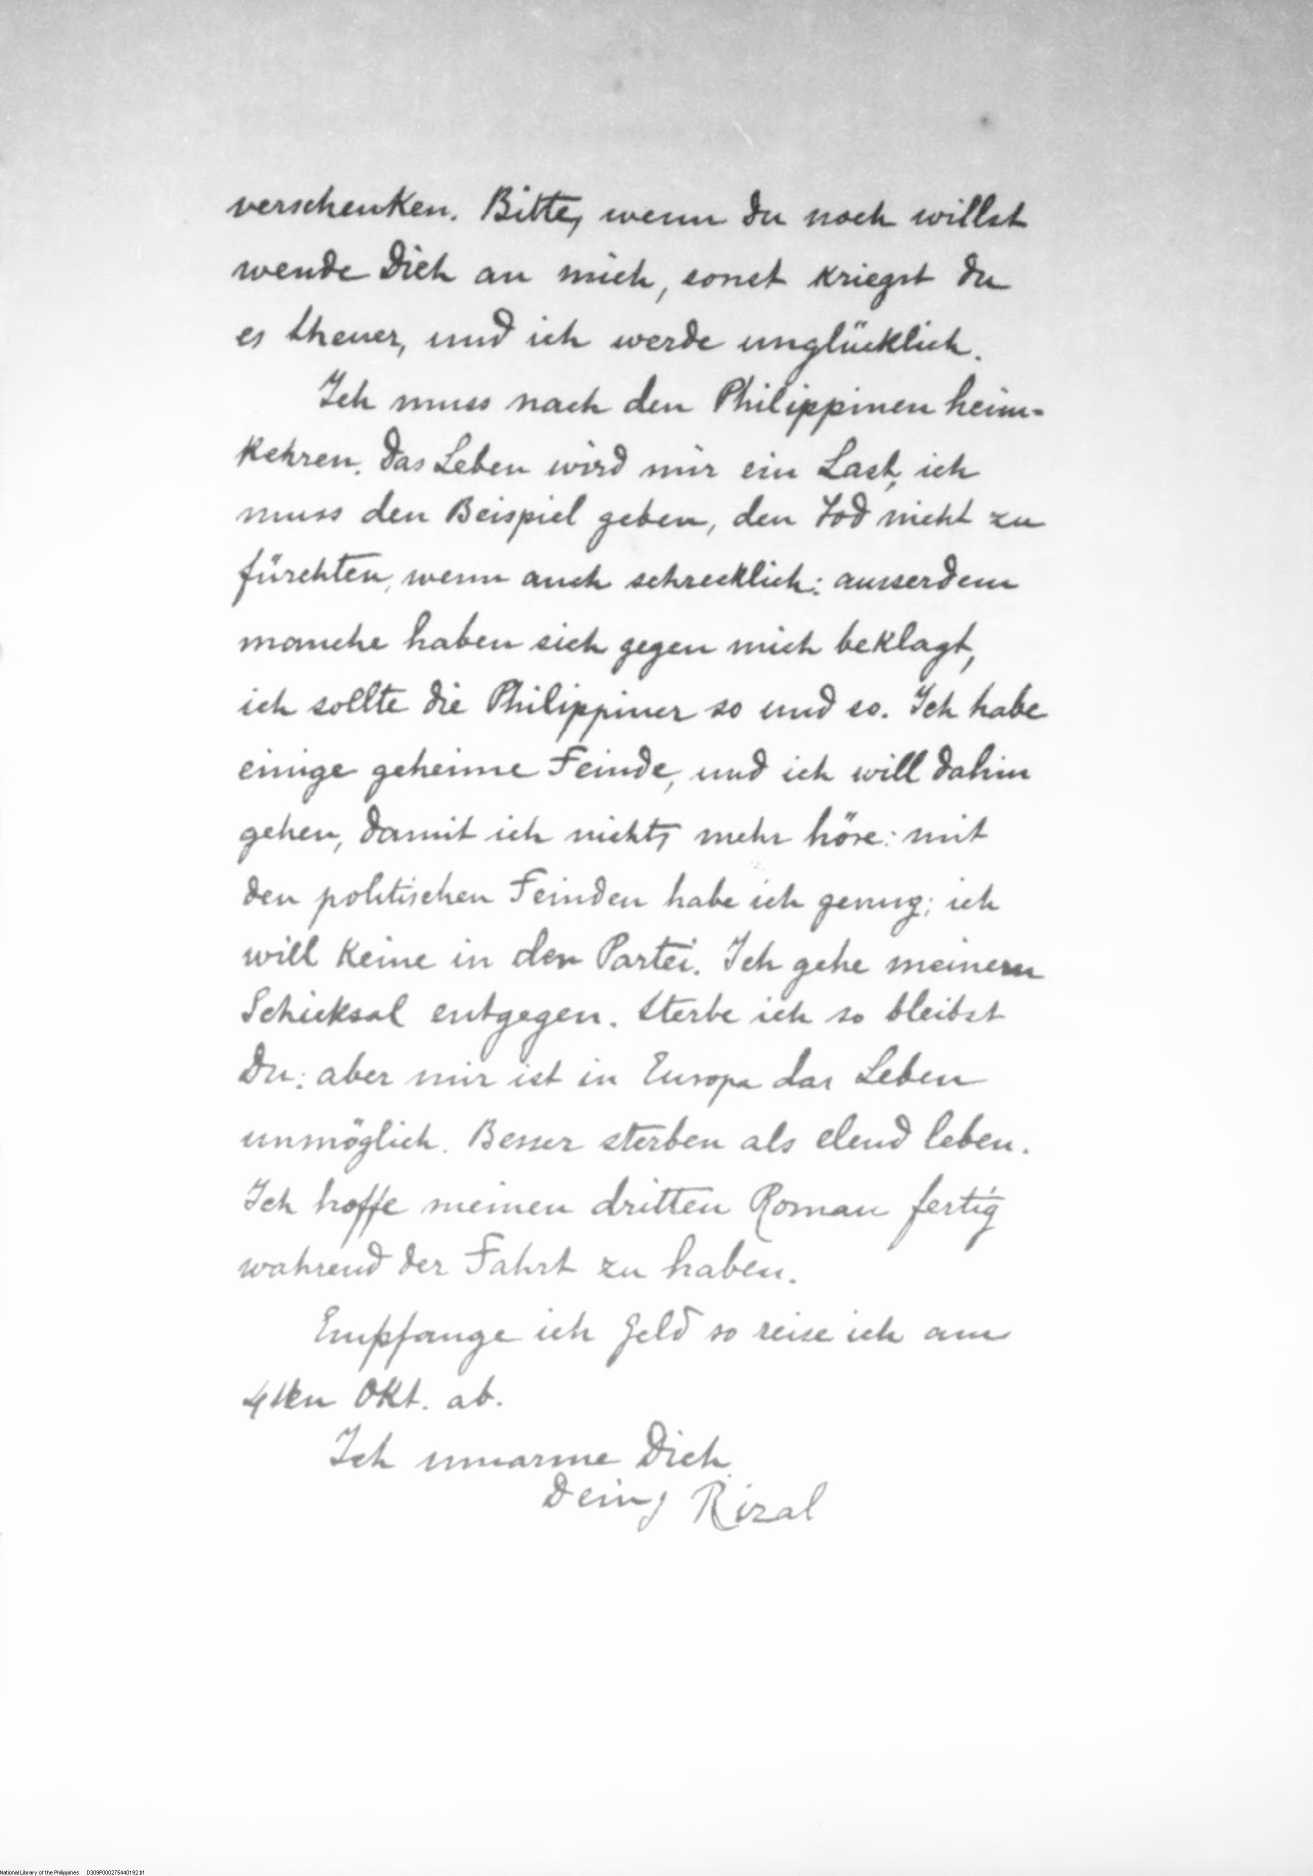 verschenken. Bitte, wenn du noch willst
wende Dich an mich, sonst kriegst du
es theuer, und ich werde unglücklich.
Ich muss nach den Philippinen heim-
kehren. Das Leben wird mir ein Last, ich
muss den Beispiel geben, den Tod nicht zu
fürchten, wenn auch schrecklich: ausserdem
manche haben sich gegen mich beklagt,
ich sollte die Philippiner so und so. Ich habe
einige geheime Feinde, und ich will dahin
gehen, damit ich nichts mehr höre: mit
den politischen Feinden habe ich genug; ich
will keine in der Partei. Ich gehe meinem
Schicksal entgegen. Sterbe ich so bleibst
Du: aber mir ist in Europa das Leben
unmöglich. Besser sterben als elend leben.
Ich hoffe meinen dritten Roman fertig
wahrend der Fahrt zu haben.
Empfange ich Geld so reise ich am
4ten Okt. ab.
Ich umarme Dich
Dein Rizal
National Library of the Philippines D309P000275440192.tif